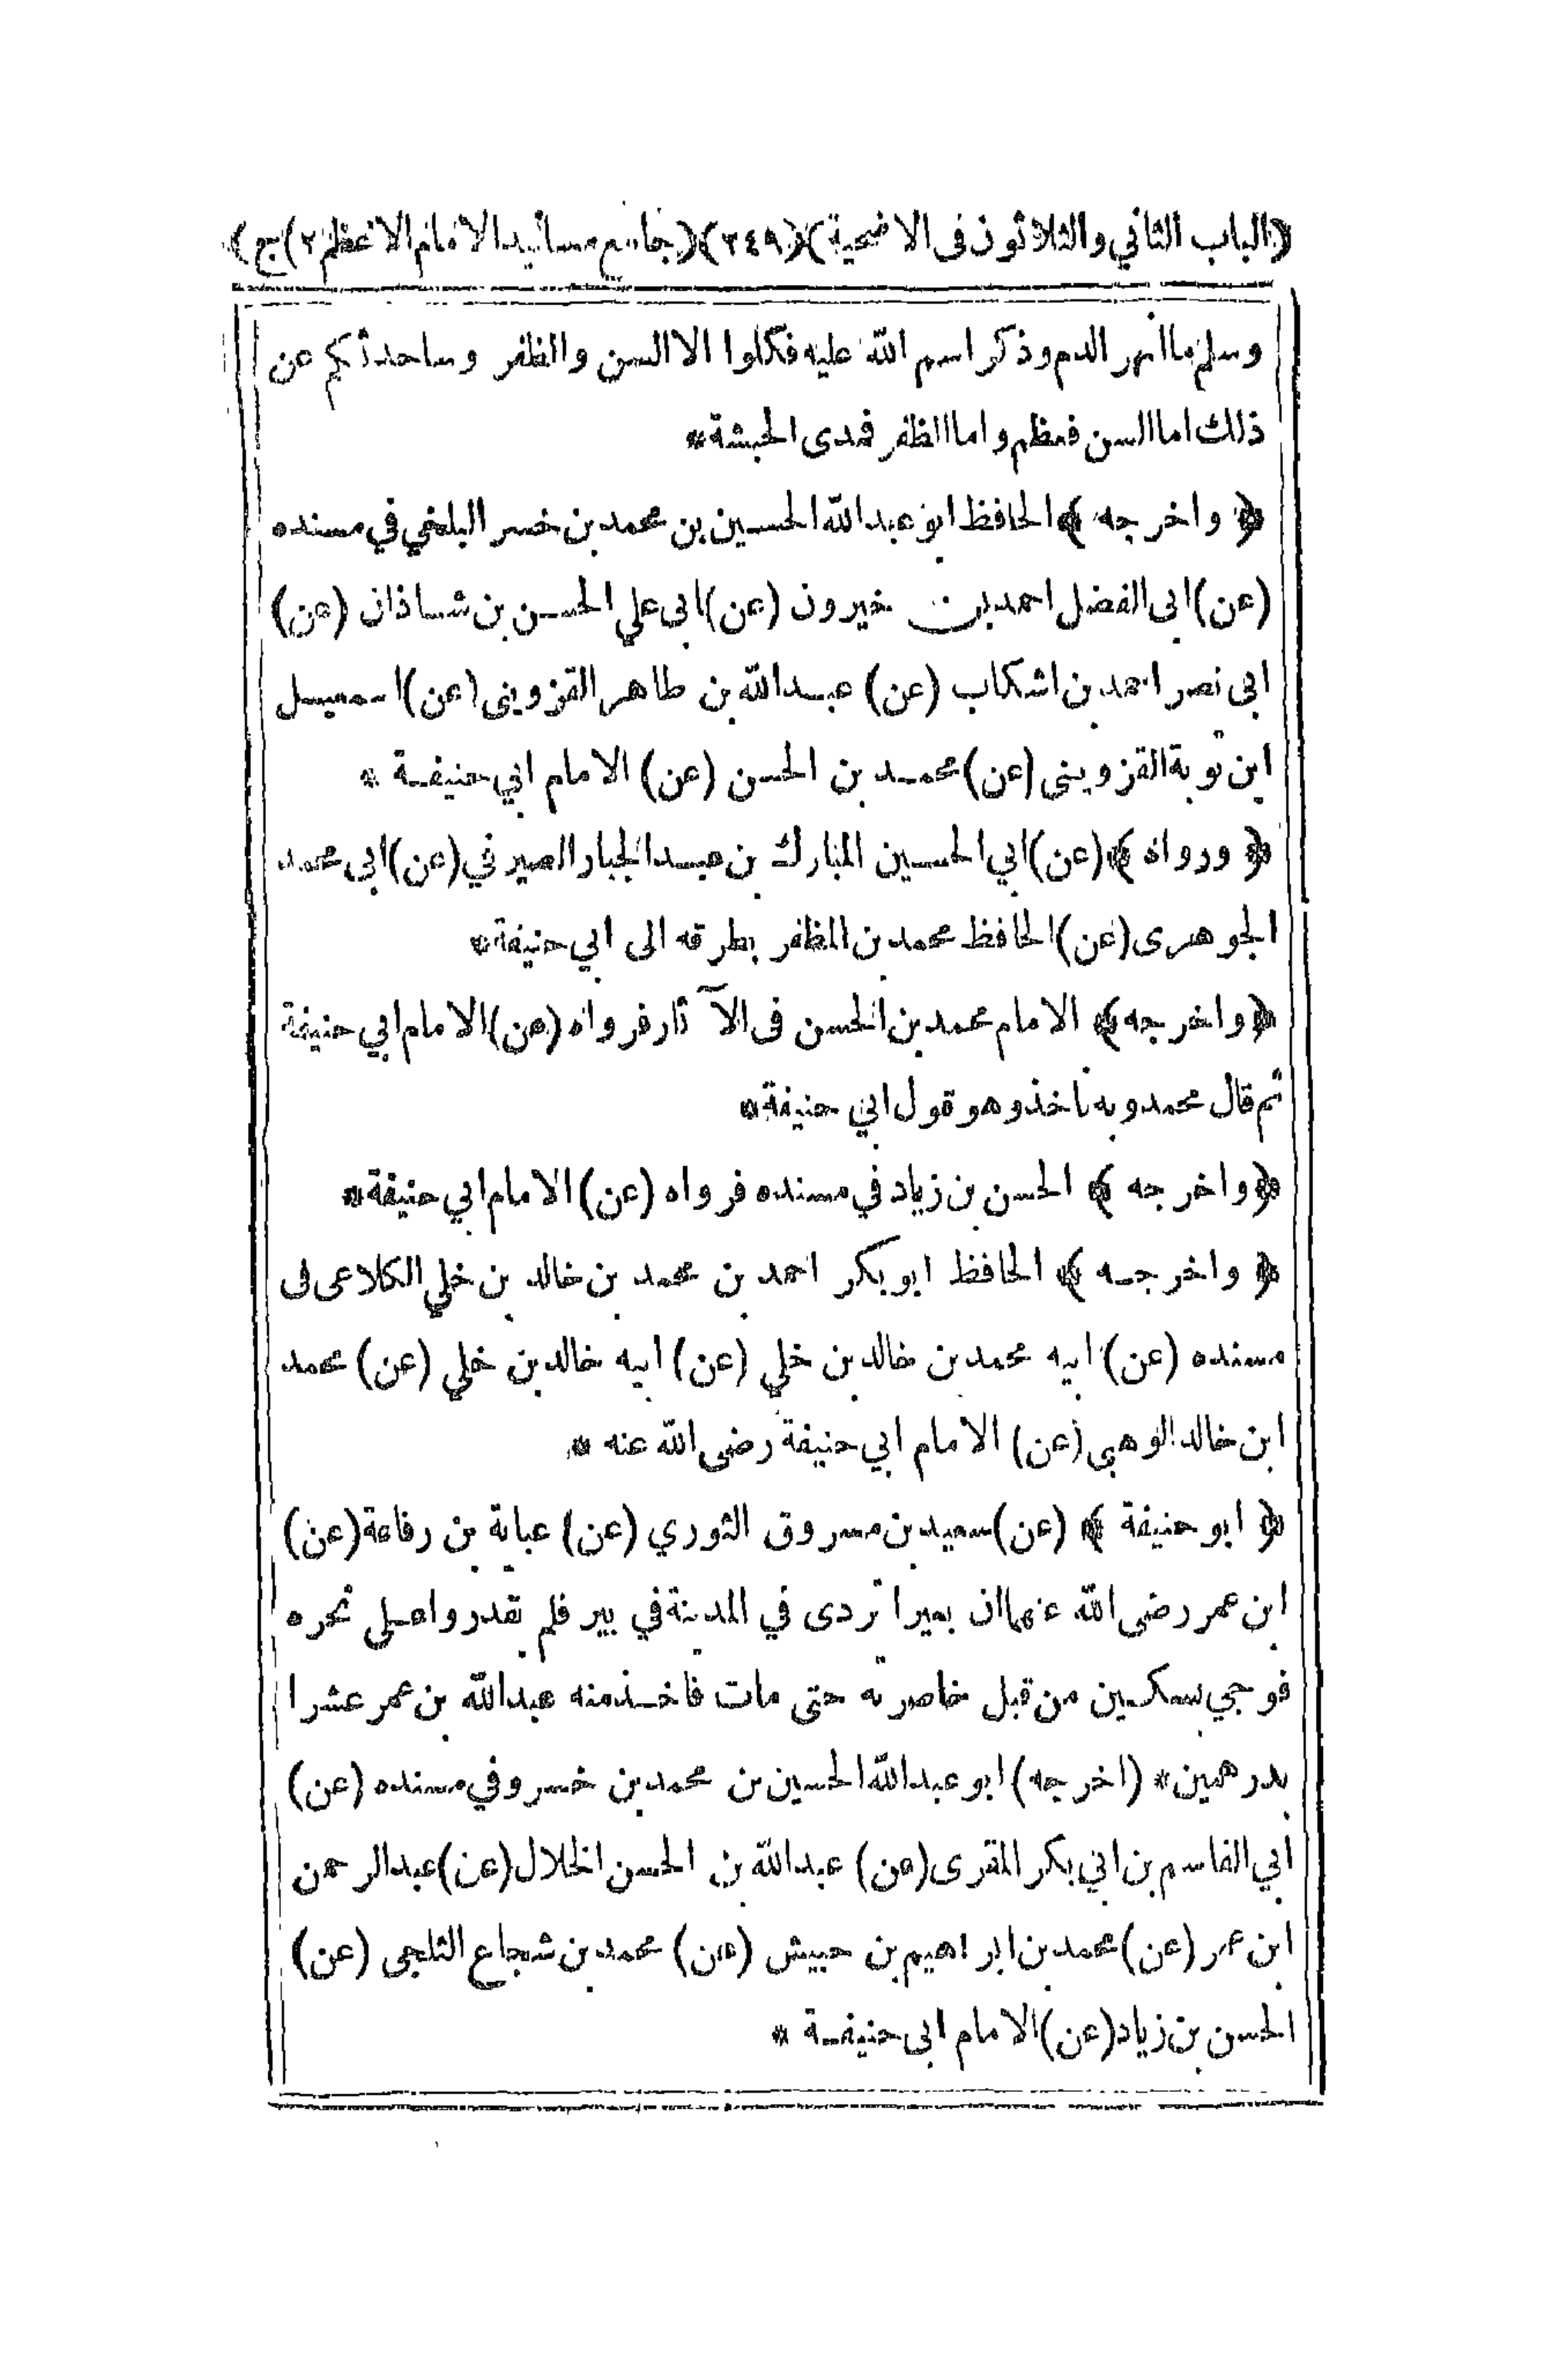 ﴿الباب الثاني والثلاثون فى الاضحية﴾﴿٢٤٩﴾﴿جامع مسانيد الامام الاعظم ٢)ج﴾
وسلم ما انهر الدم وذكر اسم الله عليه فكلوا الا السن والظفر وساحدثكم عن
ذلك اما السن فعظم واما الظفر فمدى الحبشة *
﴿ واخرجه ﴾ الحافظ ابو عبدالله الحسين بن محمد بن خسر البلخي في مسنده
(عن) ابى الفضل احمد بن خيرون (عن) ابى علي الحسن بن شاذان (عن)
ابى نصر احمد بن اشكاب (عن) عبدالله بن طاهر القزوينى (عن) اسمعيل
ابن توبة القزوينى (عن) محمد بن الحسن (عن) الامام ابي حنيفة *
﴿ ورواه ﴾ (عن) ابي الحسين المبارك بن عبد الجبار الصيرفي (عن) ابى محمد
الجوهرى (عن) الحافظ محمد بن المظفر بطرقه الى ابي حنيفة *
﴿ واخرجه ﴾ الامام محمد بن الحسن فى الآثار فرواه (عن) الامام ابي حنيفة
ثم قال محمد وبه ناخذ وهو قول ابي حنيفة *
﴿ واخرجه ﴾ الحسن بن زياد في مسنده فرواه (عن) الامام ابي حنيفة *
﴿ واخرجه ﴾ الحافظ ابو بكر احمد بن محمد بن خالد بن خلي الكلاعى فى
مسنده (عن) ابيه محمد بن خالد بن خلي (عن) ابيه خالد بن خلي (عن) محمد
ابن خالد الوهبى (عن) الامام ابي حنيفة رضى الله عنه *
﴿ ابو حنيفة ﴾ (عن) سعيد بن مسروق الثوري (عن) عباية بن رفاعة (عن)
ابن عمر رضى الله عنهما ان بعيرا تردى في المدينة في بير فلم يقدروا على نحره
فوجي بسكين من قبل خاصرته حتى مات فاخذ منه عبدالله بن عمر عشرا
بدرهمين * (اخرجه) ابو عبدالله الحسين بن محمد بن خسرو في مسنده (عن)
ابي القاسم بن ابي بكر المقرى (عن) عبدالله بن الحسن الخلال (عن) عبدالرحمن
ابن عمر (عن) محمد بن ابراهيم بن حبيش (عن) محمد بن شجاع الثلجى (عن)
الحسن بن زياد (عن) الامام ابى حنيفة *